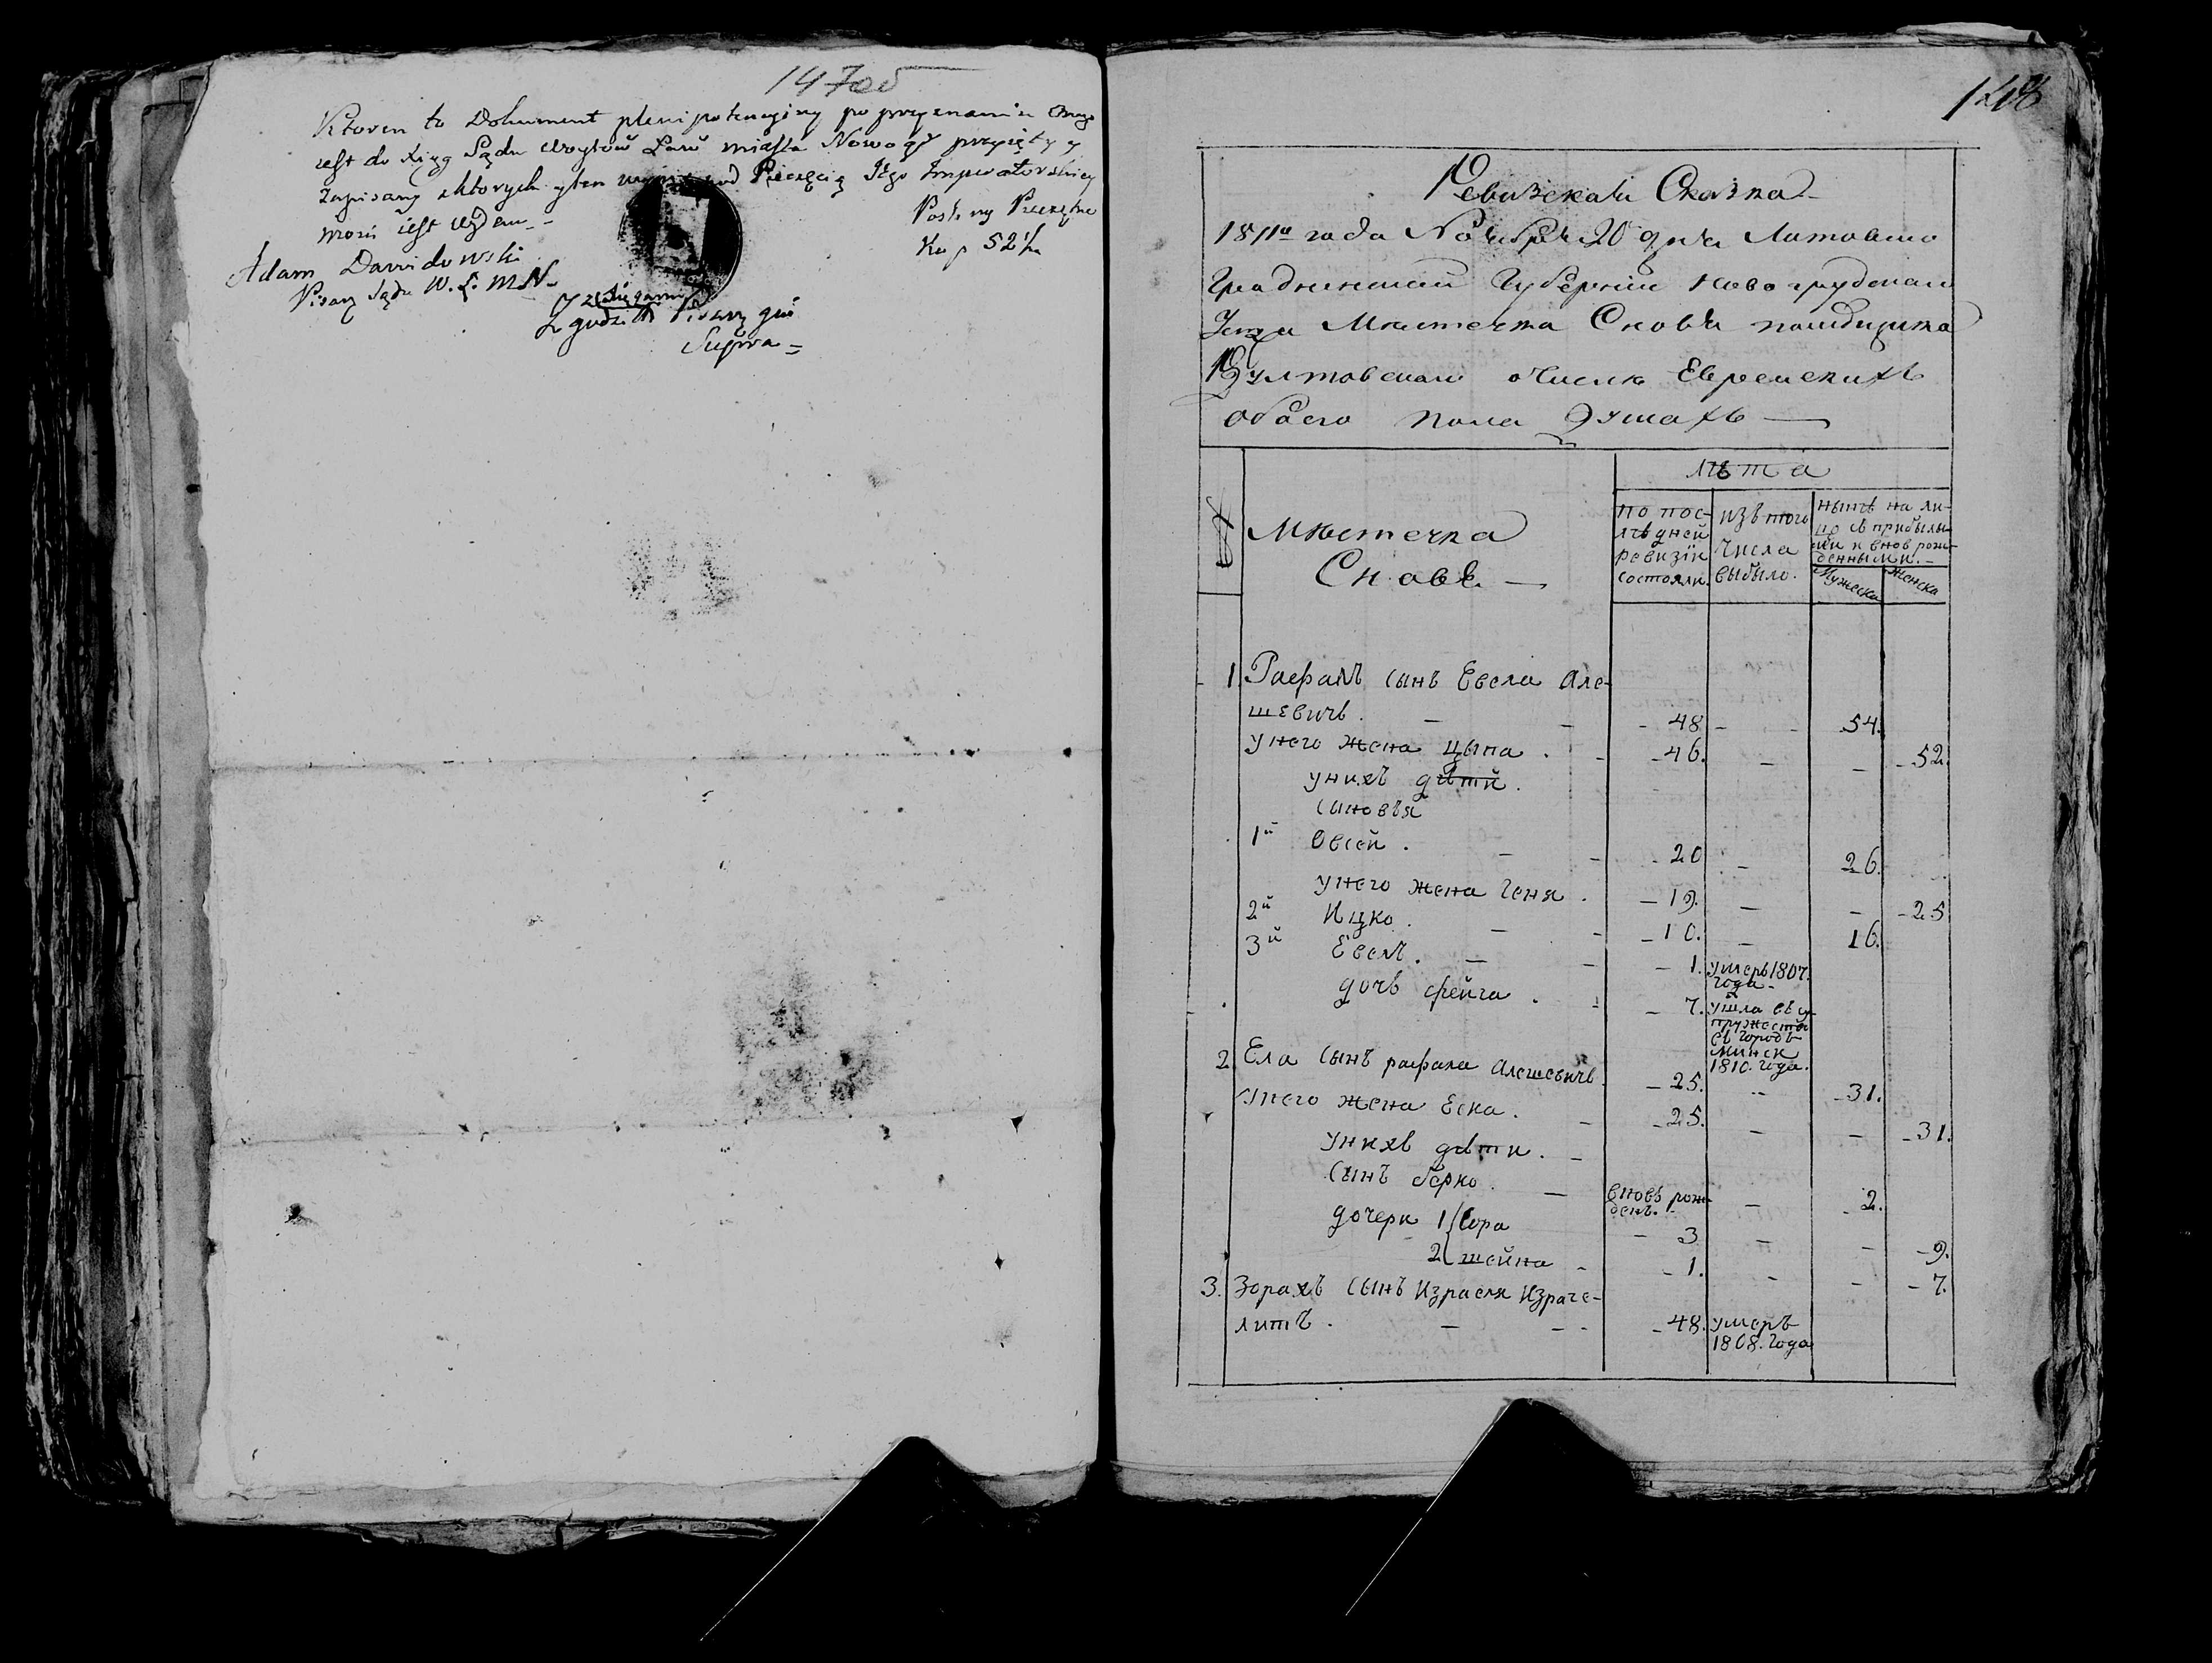 147об
Ktoren to Dokument plenipotencyiny po przyznaniu
iest do Xiąg Sądu miasta przyięty y
zapisany z ktorych y ten pod Pieczęcią Jego Imperatorskiey
mosci iest wydan
Adam Dawidowski
Pisarz Sądu W. Ł. M. N.
Kop 52 1/2
Pisarz qui
Supra
148
Ревизская Сказка
1811го года Ноября 20 дня Литовско
Гродненской Губернии Новогрудскаго
Местечка Сновя помещика
о числе Еврейскихъ
обоего пола душахъ
лѣта
Местечка
Сновя
по пос-
лѣдней
ревизіи
состояли.
изъ того
числа
выбыло.
нынѣ на ли-
цо съ прибылы-
ми и вновь рож-
денными.
Мужеска
Женска
1. Рафалъ сынъ Евеля Але-
шевичъ. - 48 - 54.
у него жена Цыпа. - 46. - - 52.
у нихъ дѣти.
сыновья
1й Овсей. - 20 - 26.
у него жена Геня. - 19. - - 25
2й Ицко. - 10. - 16.
3й Евель. - 1. умеръ 1807.
года.
дочь Фейга. - 7. ушла въ су-
пружество
въ городъ
Минск
1810. года.
2. Ела сынъ Рафала Алешевичъ - 25. - 31.
у него жена Еска. - 25. - - 31.
у нихъ дѣти. -
сынъ Берко. - вновь рож-
денъ. - 2.
дочери 1 Сора - 3 - - 9.
2 Шейна - 1. - - 7.
3. Зорахъ сынъ Израеля Израе-
литъ. - 48. умеръ
1808. года